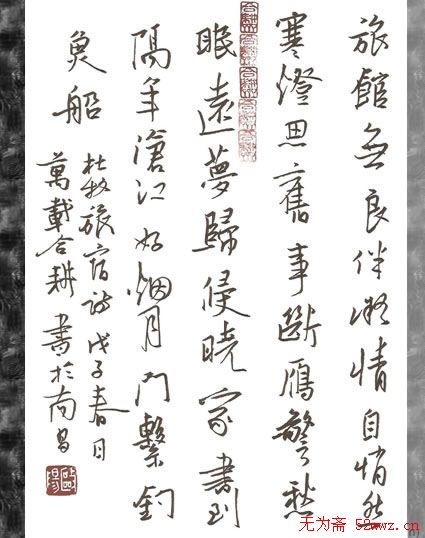 旅館無良伴凝情自悄然
寒燈思舊事斷鴈警愁
眠遠夢歸侵曉家書到
隔年滄江好烟月門繫釣
魚船
杜牧旅宿詩戊子春日
萬載合耕書於南昌
无为斋 52wwz.cn